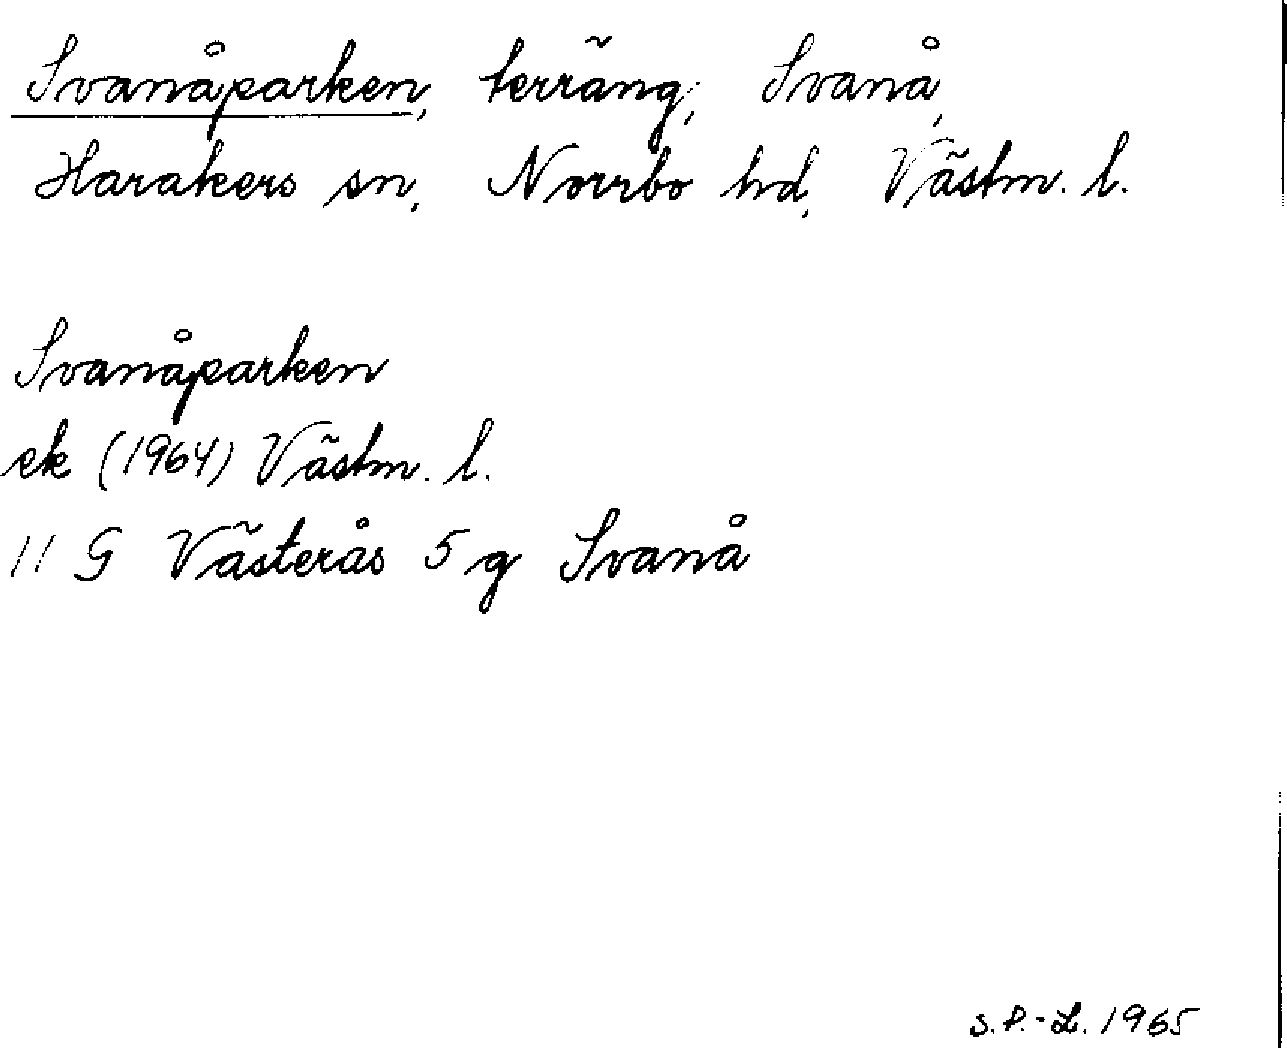 Svanåparken, terräng, Svanå,
Harakers sn, Norrbo hd, Västm. l.
Svanåparken
ek (1964) Västm. l.
11 G Västerås 5 g Svanå
S.P.-L. 1965